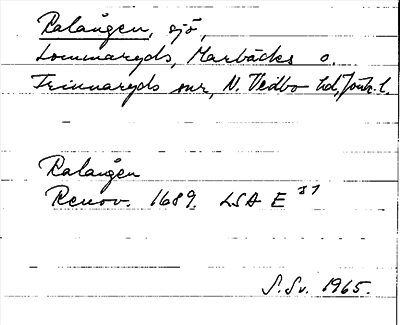 Ralången, sjö,
Lommaryds, Marbäcks o.
Frinnaryds snr, N. Vedbo hd, Jönk. l.
Ralången
Renov. 1689. LSA E 37
S. Sv. 1965.